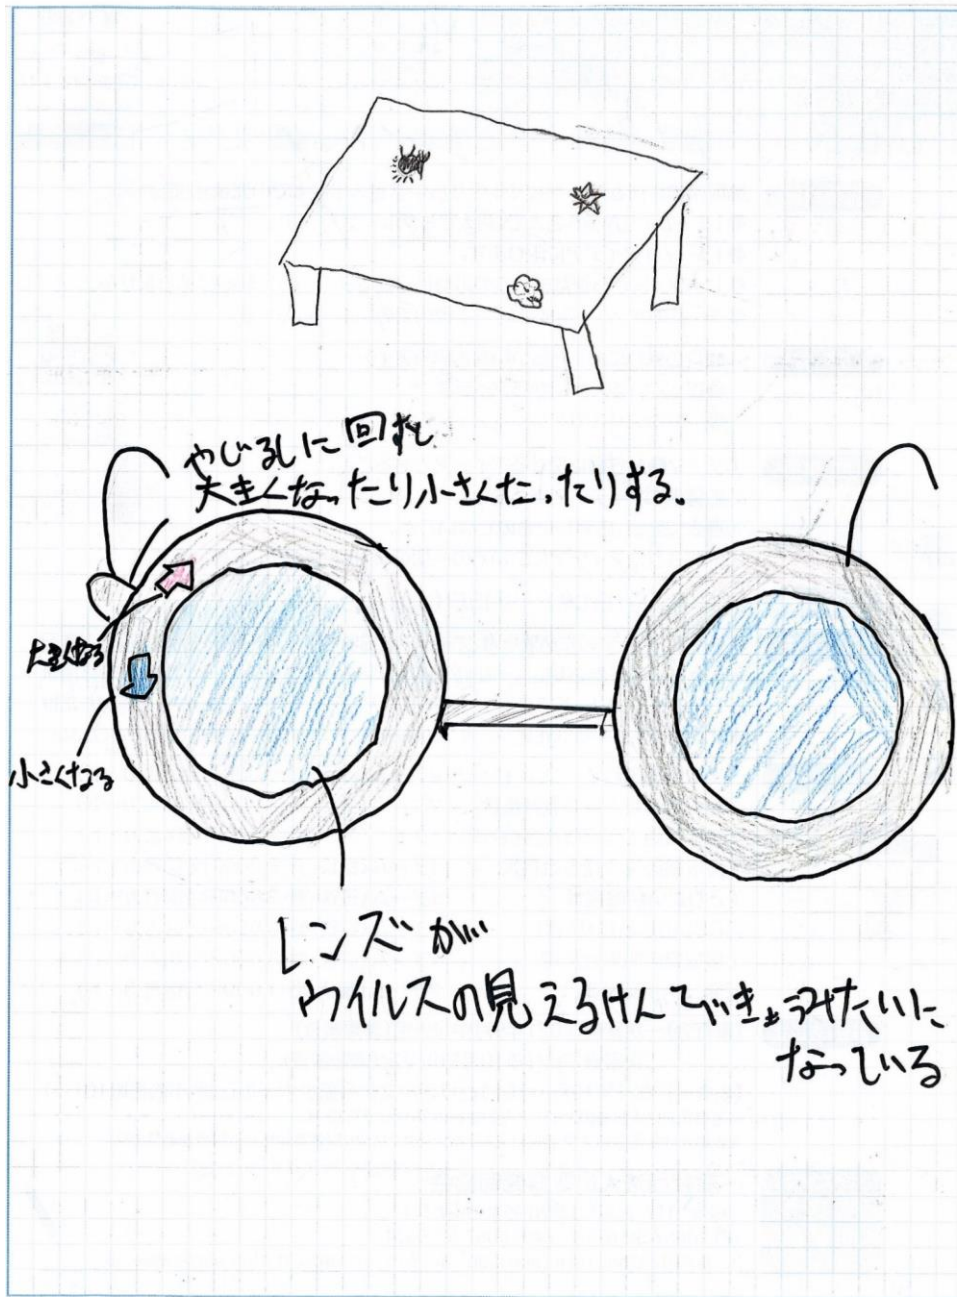 やじるしに回すと
大きくなったり小さくなったりする。
大きくなる
小さくなる
レンズが
ウイルスの見えるけんびきょうみたいに
なっている